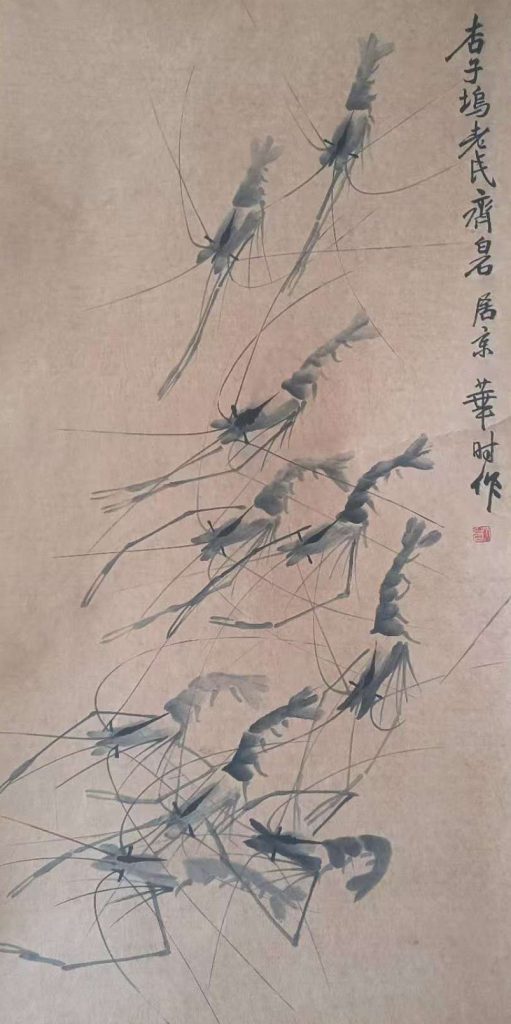 杏子坞老民齊白石居京華时作